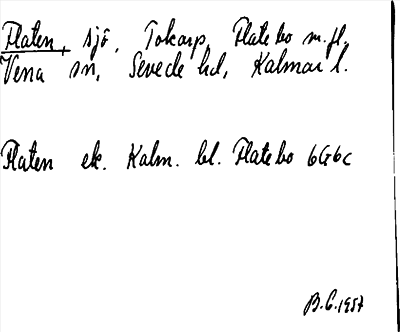 Flaten, sjö, Tokarp, Flatebo m.fl.
Vena sn, Sevede hd, Kalmar l.
Flaten ek. Kalm. bl. Flatebo 6G6c
B.G.1957